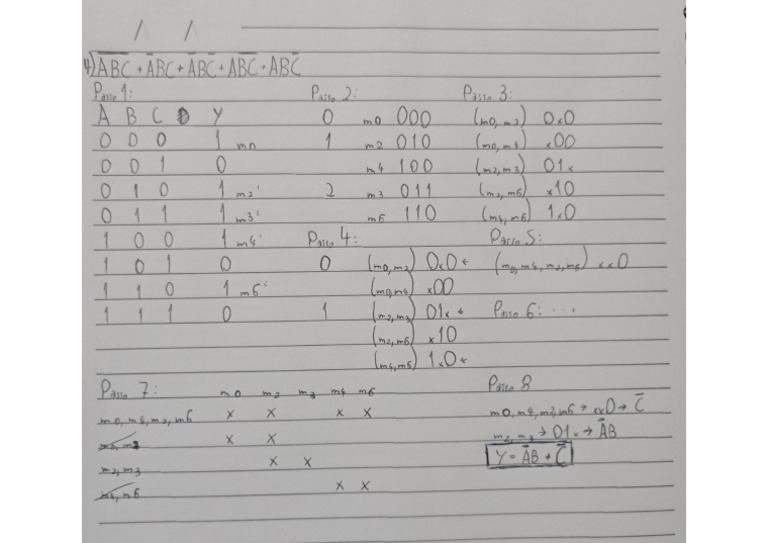 4) A̅B̅C̅ + A̅BC̅ + A̅BC + AB̅C̅ + ABC̅
Passo 1: Passo 2: Passo 3:
A B C Y 0 m0 000 (m0, m2) 0x0
0 0 0 1 m0 1 m2 010 (m0, m4) x00
0 0 1 0 m4 100 (m2, m3) 01x
0 1 0 1 m2 2 m3 011 (m2, m6) x10
0 1 1 1 m3 m6 110 (m4, m6) 1x0
1 0 0 1 m4 Passo 4: Passo 5:
1 0 1 0 0 (m0, m2) 0x0 * (m0, m4, m2, m6) xx0
1 1 0 1 m6 (m0, m4) x00
1 1 1 0 1 (m2, m3) 01x * Passo 6: ...
(m2, m6) x10
(m4, m6) 1x0 *
Passo 7: m0 m2 m3 m4 m6 Passo 8
m0, m4, m2, m6 x x x x m0, m4, m2, m6 → xx0 → C̅
m0, m2 x x m2, m3 → 01x → A̅B
m2, m3 x x Y = A̅B + C̅
m4, m6 x x